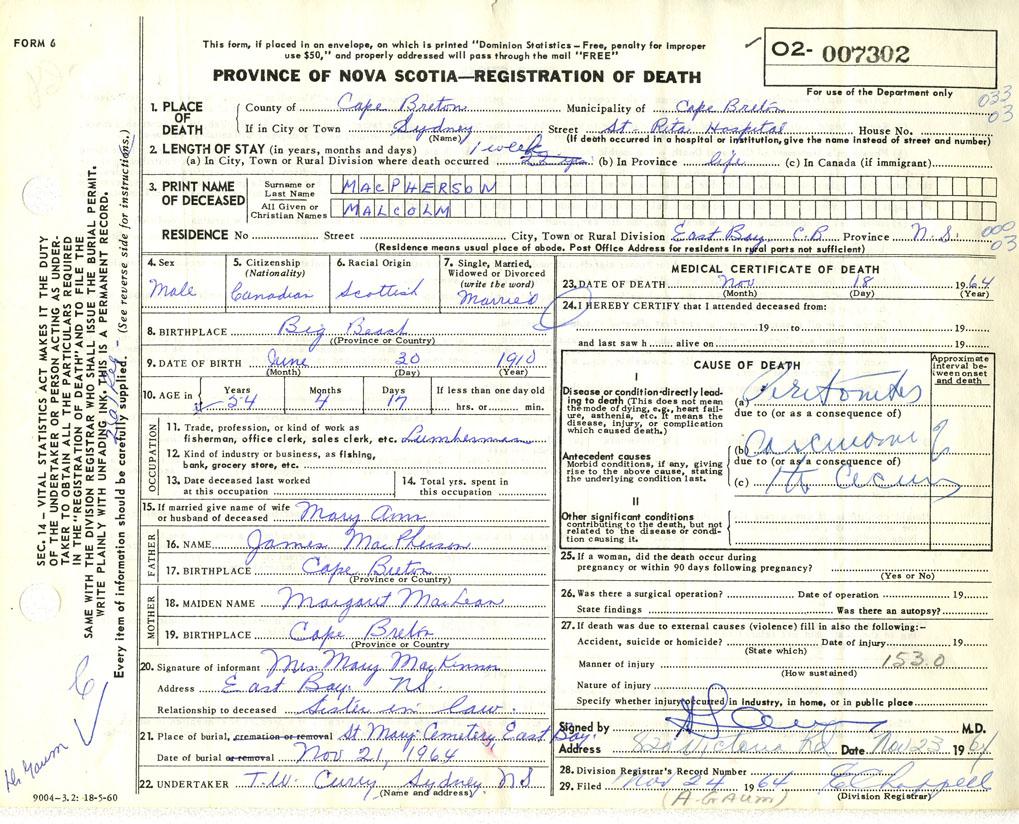 FORM 6
This form, if placed in an envelope, on which is printed "Dominion Statistics – Free, penalty for improper
use $50," and properly addressed will pass through the mail "FREE"
PROVINCE OF NOVA SCOTIA—REGISTRATION OF DEATH
O2- 007302
For use of the Department only
033
03
1. PLACE OF DEATH
County of Cape Breton Municipality of Cape Breton
If in City or Town Sydney (Name) Street St. Rita Hospital House No.
(If death occurred in a hospital or institution, give the name instead of street and number)
2. LENGTH OF STAY (in years, months and days)
(a) In City, Town or Rural Division where death occurred 1 week (b) In Province life (c) In Canada (if immigrant)
3. PRINT NAME OF DECEASED
Surname or Last Name MACPHERSON
All Given or Christian Names MALCOLM
RESIDENCE No Street City, Town or Rural Division East Bay C.B Province N.S.
000
03
(Residence means usual place of abode. Post Office Address for residents in rural parts not sufficient)
4. Sex
Male
5. Citizenship
(Nationality)
Canadian
6. Racial Origin
Scottish
7. Single, Married,
Widowed or Divorced
(write the word)
Married
8. BIRTHPLACE Big Beach
(Province or Country)
9. DATE OF BIRTH June 30 1910
(Month) (Day) (Year)
10. AGE in Years 54 Months 4 Days 17 If less than one day old
hrs. or min.
OCCUPATION
11. Trade, profession, or kind of work as
fisherman, office clerk, sales clerk, etc. Lumberman
12. Kind of industry or business, as fishing,
bank, grocery store, etc.
13. Date deceased last worked
at this occupation
14. Total yrs. spent in
this occupation
15. If married give name of wife
or husband of deceased Mary Ann
FATHER
16. NAME James MacPherson
17. BIRTHPLACE Cape Breton
(Province or Country)
MOTHER
18. MAIDEN NAME Margaret MacLean
19. BIRTHPLACE Cape Breton
(Province or Country
20. Signature of informant Mrs. Mary MacKinnon
Address East Bay NS.
Relationship to deceased Sister in law.
21. Place of burial, cremation or removal St Mary Cemetery, East Bay.
Date of burial or removal Nov 21, 1964
22. UNDERTAKER T.W. Curry Sydney NS
(Name and address)
9004–3.2: 18-5-60
MEDICAL CERTIFICATE OF DEATH
23. DATE OF DEATH Nov 18 1964
(Month) (Day) (Year)
24. I HEREBY CERTIFY that I attended deceased from:
19 to 19
and last saw h alive on 19
CAUSE OF DEATH
Approximate
interval be-
tween onset
and death
I
Disease or condition directly lead-
ing to death (This does not mean
the mode of dying, e.g., heart fail-
ure, asthenia, etc. It means the
disease, injury, or complication
which caused death.)
(a) Peritonitis
due to (or as a consequence of)
Antecedent causes
Morbid conditions, if any, giving
rise to the above cause, stating
the underlying condition last.
(b) Carcinoma of
due to (or as a consequence of)
(c) the Cecum
II
Other significant conditions
contributing to the death, but not
related to the disease or condi-
tion causing it.
25. If a woman, did the death occur during
pregnancy or within 90 days following pregnancy?
(Yes or No)
26. Was there a surgical operation? Date of operation 19
State findings Was there an autopsy?
27. If death was due to external causes (violence) fill in also the following:–
Accident, suicide or homicide? Date of injury 19
(State which)
Manner of injury 153.0
(How sustained)
Nature of injury
Specify whether injury occurred in industry, in home, or in public place
Signed by M.D.
Address Victoria Rd Date Nov 23 1964
28. Division Registrar's Record Number
29. Filed Nov 24 1964 E Chappell
(A. Graum) (Division Registrar)
SEC. 14 – VITAL STATISTICS ACT MAKES IT THE DUTY
OF THE UNDERTAKER OR PERSON ACTING AS UNDER-
TAKER TO OBTAIN ALL THE PARTICULARS REQUIRED
IN THE "REGISTRATION OF DEATH" AND TO FILE THE
SAME WITH THE DIVISION REGISTRAR WHO SHALL ISSUE THE BURIAL PERMIT.
WRITE PLAINLY WITH UNFADING INK. THIS IS A PERMANENT RECORD.
Every item of information should be carefully supplied. – (See reverse side for instructions.)